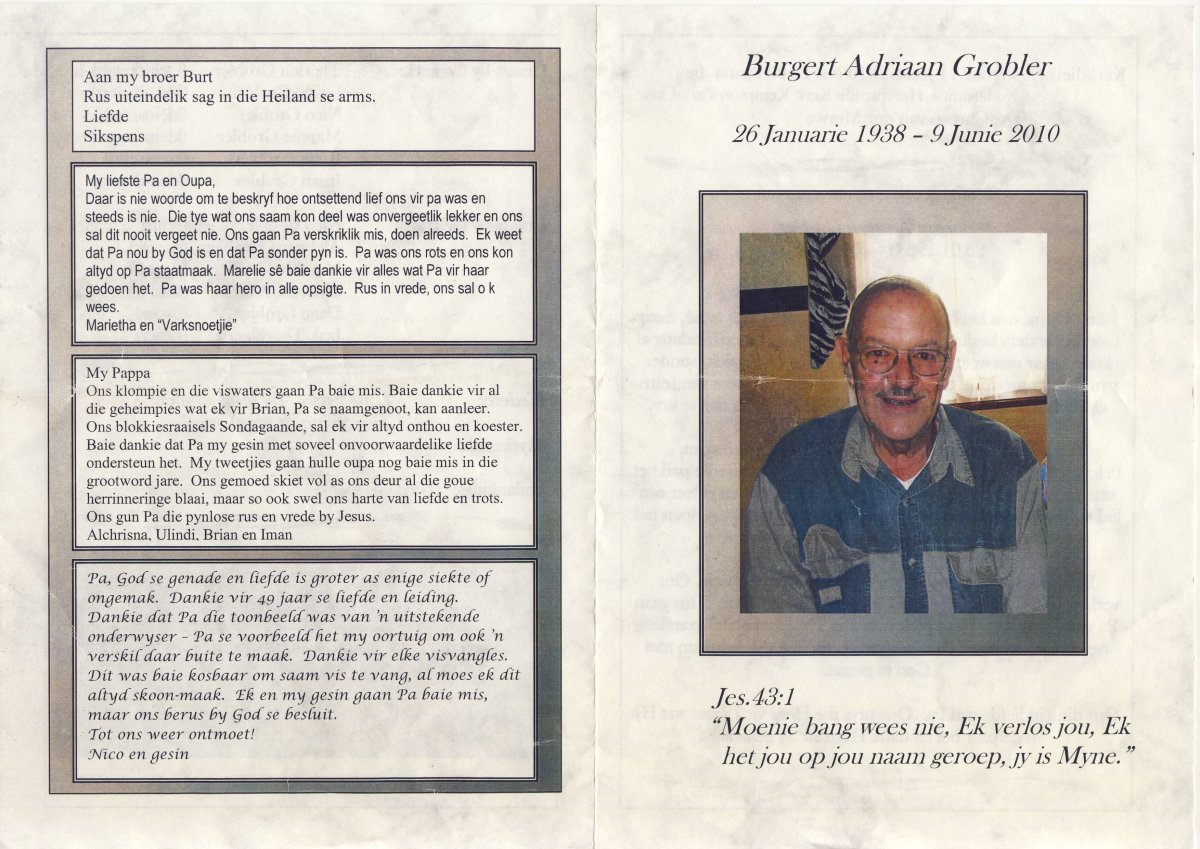 Aan my broer Burt
Rus uiteindelik sag in die Heiland se arms.
Liefde
Sikspens
My liefste Pa en Oupa,
Daar is nie woorde om te beskryf hoe ontsettend lief ons vir pa was en
steeds is nie. Die tye wat ons saam kon deel was onvergeetlik lekker en ons
sal dit nooit vergeet nie. Ons gaan Pa verskriklik mis, doen alreeds. Ek weet
dat Pa nou by God is en dat Pa sonder pyn is. Pa was ons rots en ons kon
altyd op Pa staatmaak. Marelie sê baie dankie vir alles wat Pa vir haar
gedoen het. Pa was haar hero in alle opsigte. Rus in vrede, ons sal o k
wees.
Marietha en “Varksnoetjie”
My Pappa
Ons klompie en die viswaters gaan Pa baie mis. Baie dankie vir al
die geheimpies wat ek vir Brian, Pa se naamgenoot, kan aanleer.
Ons blokkiesraaisels Sondagaande, sal ek vir altyd onthou en koester.
Baie dankie dat Pa my gesin met soveel onvoorwaardelike liefde
ondersteun het. My tweetjies gaan hulle oupa nog baie mis in die
grootword jare. Ons gemoed skiet vol as ons deur al die goue
herrinneringe blaai, maar so ook swel ons harte van liefde en trots.
Ons gun Pa die pynlose rus en vrede by Jesus.
Alchrisna, Ulindi, Brian en Iman
Pa, God se genade en liefde is groter as enige siekte of
ongemak. Dankie vir 49 jaar se liefde en leiding.
Dankie dat Pa die toonbeeld was van ’n uitstekende
onderwyser – Pa se voorbeeld het my oortuig om ook ’n
verskil daar buite te maak. Dankie vir elke visvangles.
Dit was baie kosbaar om saam vis te vang, al moes ek dit
altyd skoon-maak. Ek en my gesin gaan Pa baie mis,
maar ons berus by God se besluit.
Tot ons weer ontmoet!
Nico en gesin
Burgert Adriaan Grobler
26 Januarie 1938 – 9 Junie 2010
Jes.43:1
“Moenie bang wees nie, Ek verlos jou, Ek
het jou op jou naam geroep, jy is Myne.”